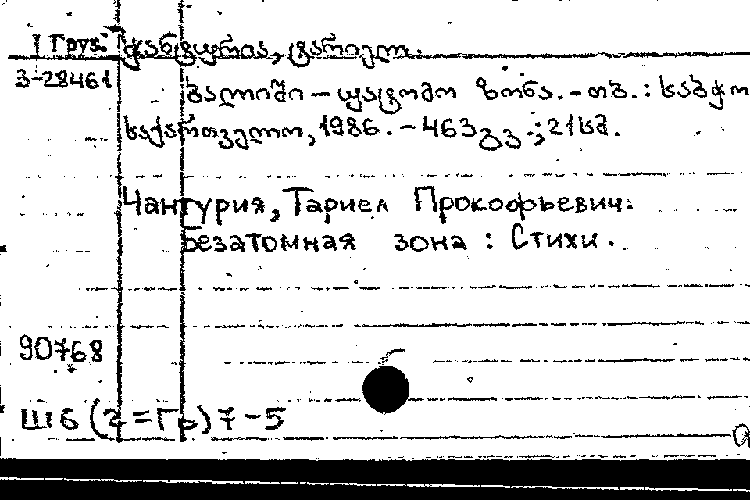 Груз.
ჭანტურია, ტარიელ.
3-28461
უატომო ზონა. - თბ. : საბჭო
საქართველო, 1986. - 463 გვ.; 21სმ.
Чантурия, Тариел Прокофьевич.
Безатомная зона : Стихи.
90768
Ш6 (2=Гр) 7-5